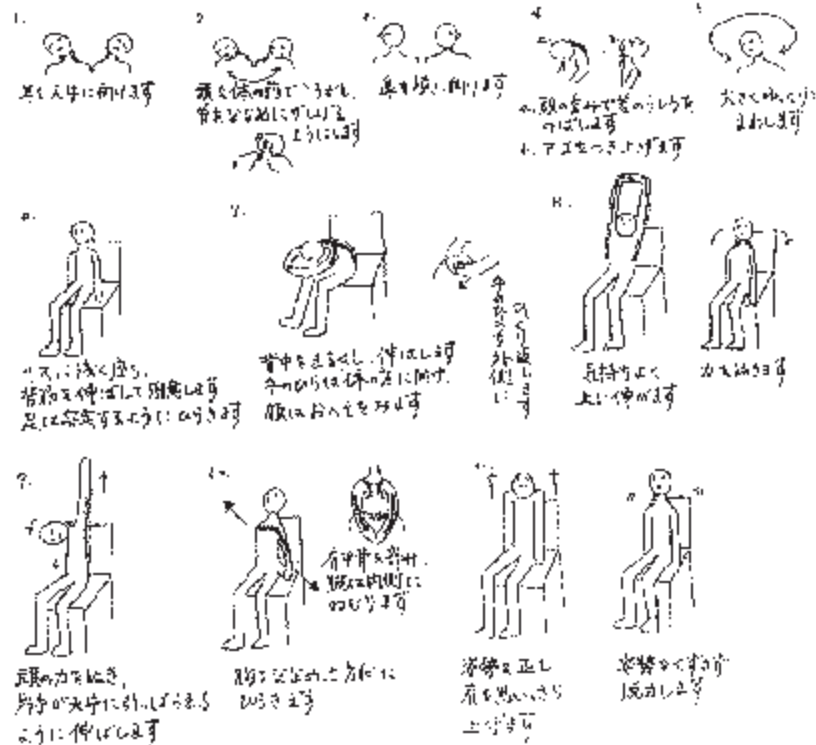 1.
耳を天井に向けます
2.
頭を体の前でころがし、
首をななめにがしばる
ようにします
3.
鼻を横に向けます
4.
a. 頭の重みで首のうしろを
のばします
b. アゴをつき上げます
5.
大きくゆっくりと
まわします
6.
イスに浅く座り、
背筋を伸ばして
足は安定するようにひらきます
7.
背中をまるくし、伸ばします
手のひらは体の方に向け、
顔はおへそをみます
手のひらを外側に
ひっくり返します
8.
気持ちよく
上に伸びます
力を抜きます
9.
頭の力をぬき、
片手が天井に引っぱられる
ように伸ばします
10.
肩甲骨を寄せ、
腕は内側に
ねじります
胸をななめ上方向に
ひらきます
姿勢を正し
肩を思いっきり
上げます
姿勢をくずさず
脱力します